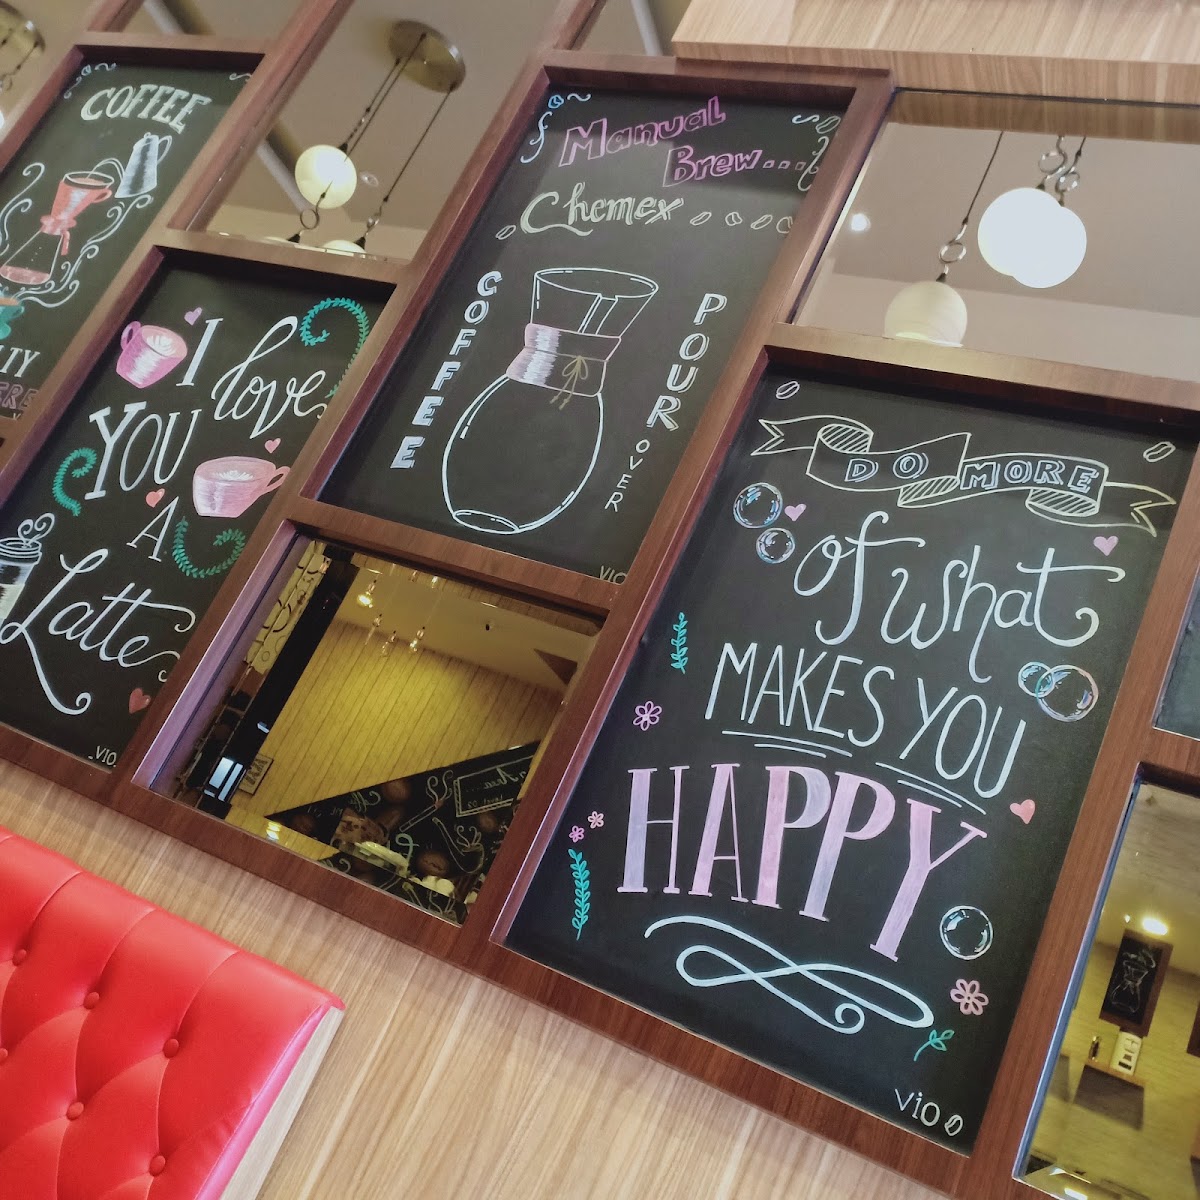 COFFEE
I love
YOU
A
Latte
VIO
Manual
Brew...
Chemex
COFFEE
POUR OVER
VIO
DO MORE
of what
MAKES YOU
HAPPY
VIO